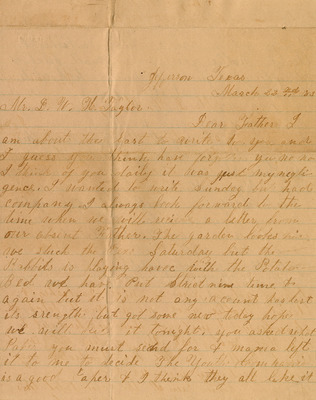 Jefferson Texas
March 23
Mr. L. W. H. Taylor
Dear Father I
am about the last to write to you and
I guess you think have forgotten you no no
I think of you daily it was just my neglı
gence. I wanted to write Sunday but had
company I always look forward to the
time when we will receive a letter from
our absent Father. The garden looks nice
we stuck the Saturday but the
Rabbits is playing havoc with the Potato
Bed we have Put Strichnine time &
again but it is not any account has lost
its strength but got some new today hope
we will it tonight, you asked what
Paper you must send for & mama left
it to me to decide The
is a good Paper & I think they all like it